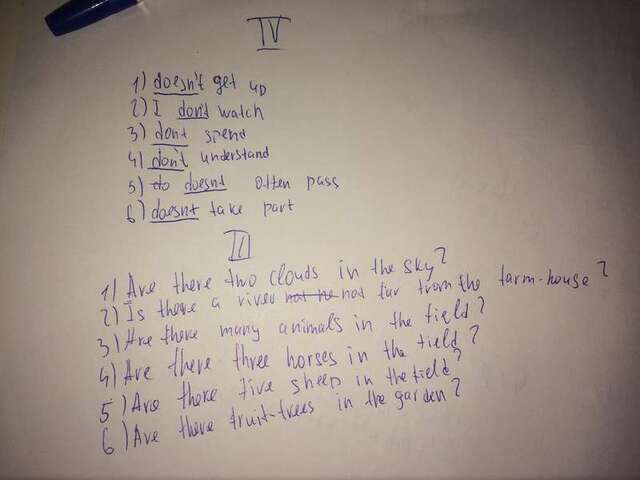 IV
1) doesn't get up
2) I don't watch
3) dont spend
4) don't understand
5) do doesnt often pass
6) doesnt take part
II
1) Are there two clouds in the sky?
2) Is there a river not the not far from the farm-house?
3) Are there many animals in the field?
4) Are there three horses in the field?
5) Are there five sheep in the field?
6) Are there fruit-trees in the garden?